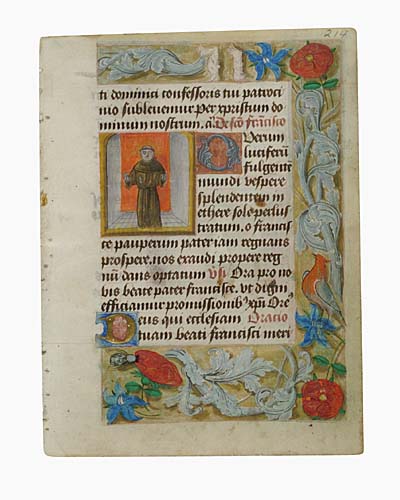 214
ti dominici confessoris tui patroci
nio subleuemur Per xpristum do
minum nostrum. a De scō frācisco
Verum
luciferū
fulgente
mundi vespere
splendentem in
ethere sole perlus
tratum. o francis
ce pauperum pater iam regnans
prospere. nos exaudi propere reg
nū dans optatum Vsi Ora pro no
bis beate pater francisce. vt digni
efficiamur promissionibꝰ xp̄i Orē
Deus qui ecclesiam Oratio
tuam beati francisci meri